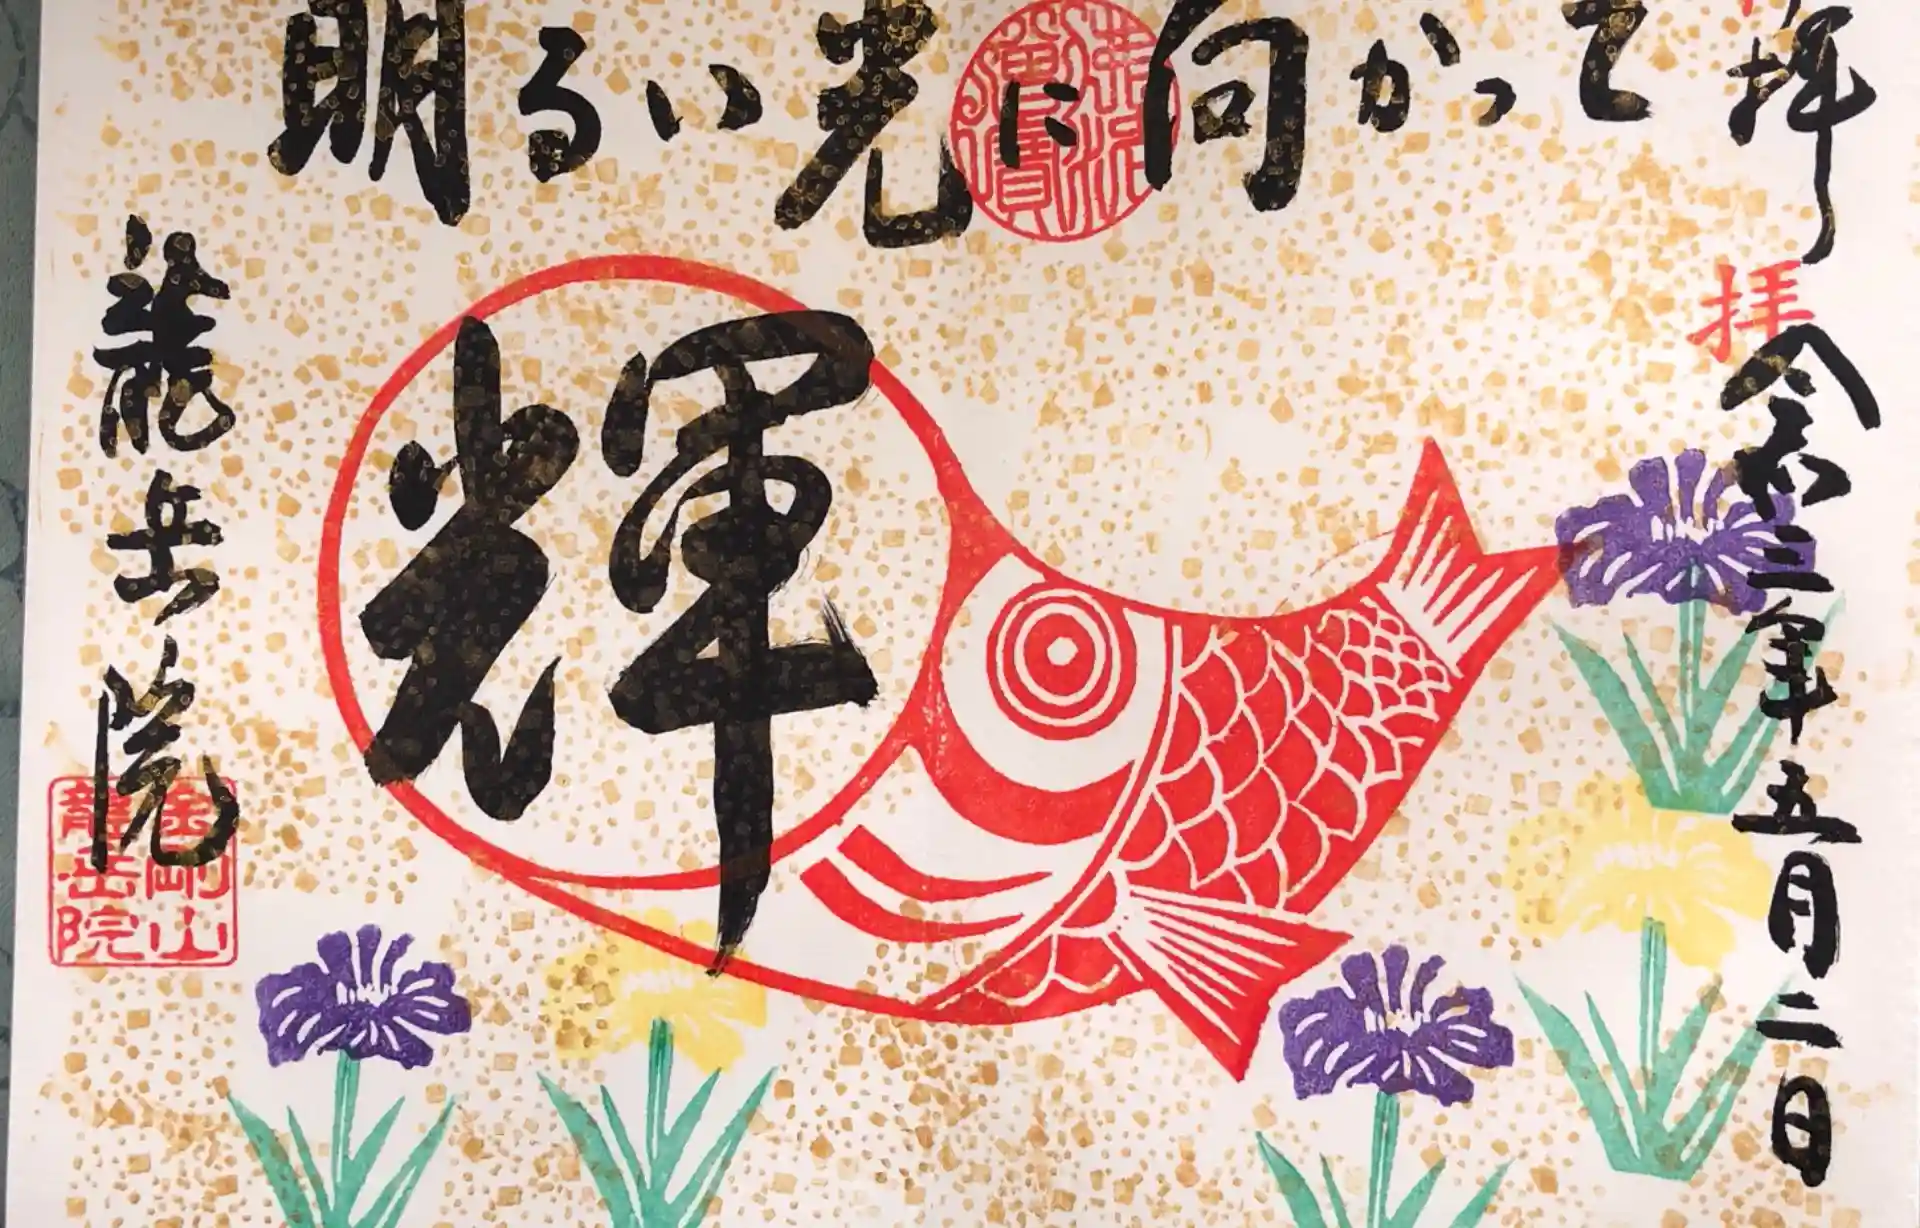 明るい光に向かって
拝
拝
令和三年五月二日
輝
龍岳院
金剛山
龍岳院